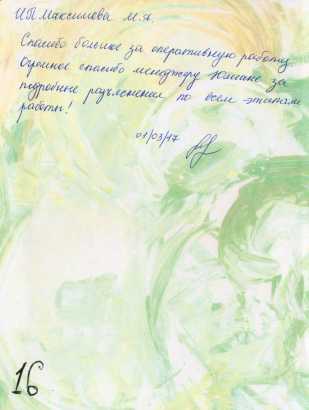 ИП Максимова М.А.
Спасибо большое за оперативную работу.
Огромное спасибо менеджеру Юлиане за
подробные разъяснения по всем этапам
работы!
01/03/17
16